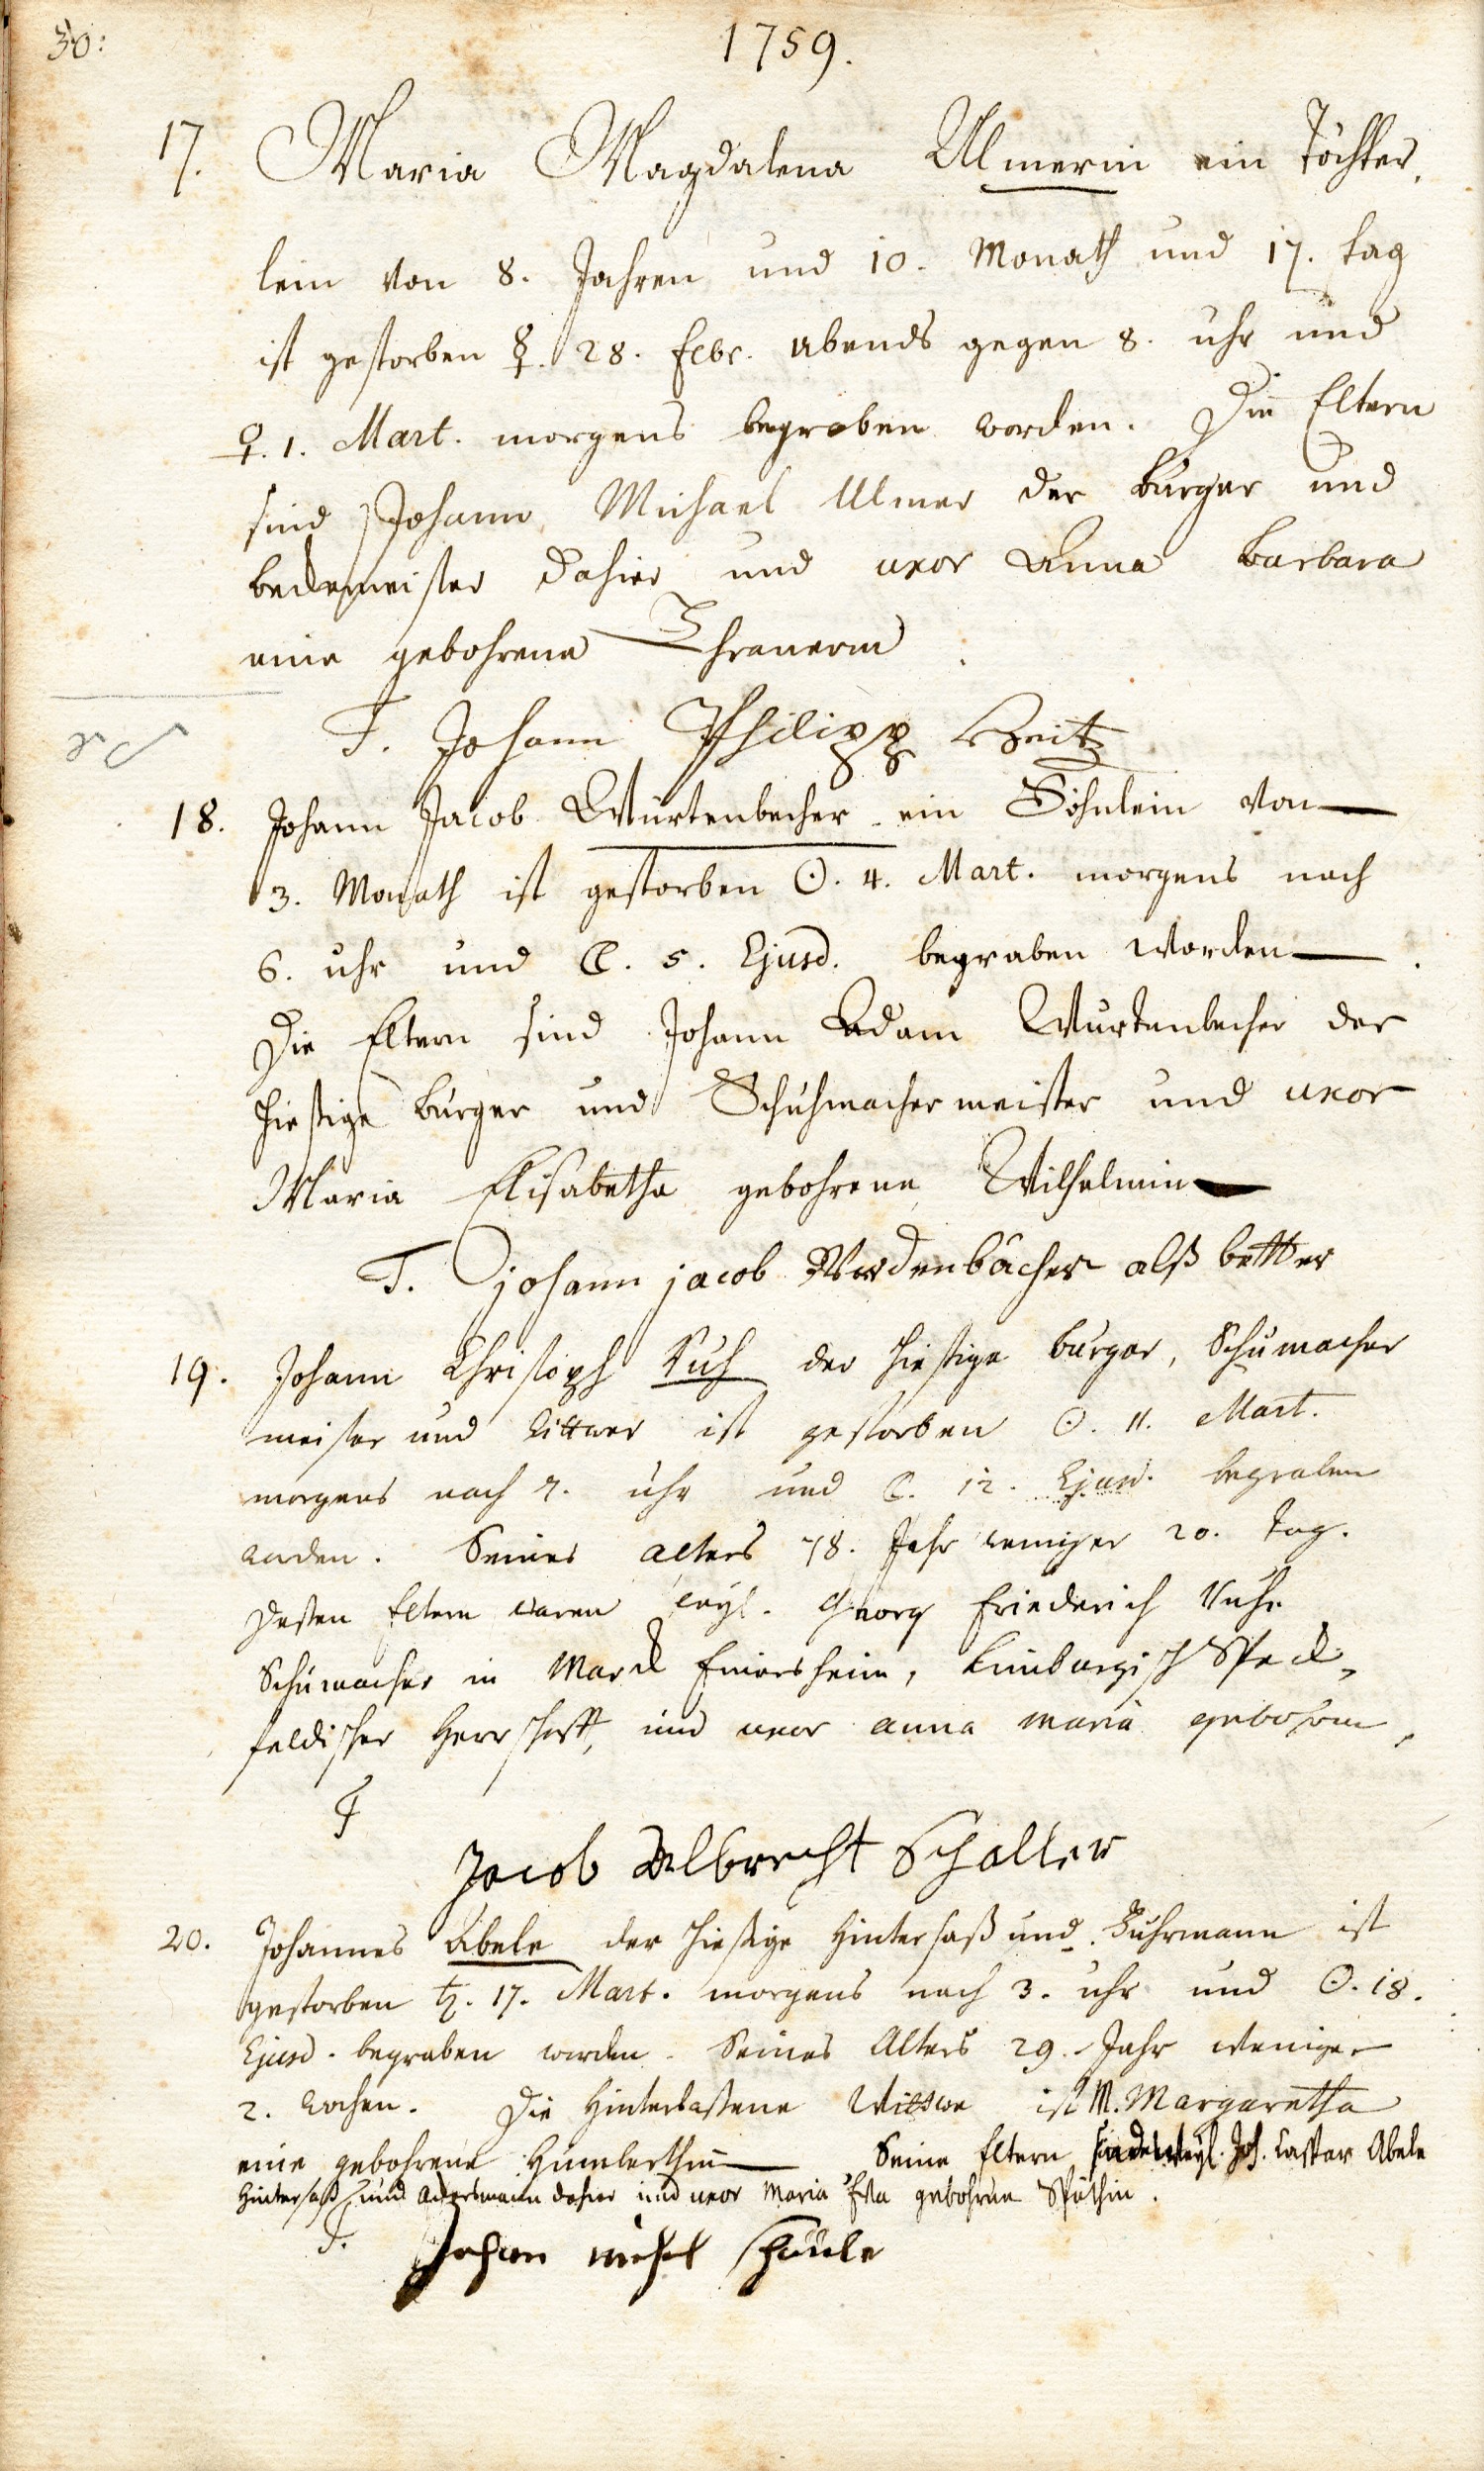 30:
1759.
17. Maria Magdalena Ulmerin ein Töchter,
lein von 8. Jahren und 10. Monath und 17. tag
ist gestorben ☿. 28. Febr. abends gegen 8. uhr und
♀. 1. Mart. morgens begraben worden. Die Eltern
sind Johann Michael Ulmer der Burger und
beckermeister dahier und uxor Anna Barbara
eine gebohrene
T. Johann Philipp Zeitz
18. Johann Jacob Würtenbecher ein Söhnlein von
3. Monath ist gestorben ☉. 4. Mart. morgens nach
6. uhr und ☾. 5. Ejusd. begraben worden.
Die Eltern sind Johann Adam Würtenbecher der
hiesige Burger und Schuhmachermeister und uxor
Maria Elisabetha gebohrene Wilhelmin
T. johann jacob alß vetter
19. Johann Christoph Vuh der hiesige burger, Schumacher
meister und Wittwer ist gestorben ☉. 11. Mart.
morgens nach 7. uhr und ☾. 12. Ejusd. begraben
worden. Seines alters 78. Jahr weniger 20. tag.
Dessen Eltern waren weyl. Georg Friederich
Schumacher in Marck Einersheim, Limburgisch Speck,
feldischer Herrschafft, und uxor anna maria gebohrne,
T
Jacob Albrecht Schaller
20. Johannes Abele der hiesige Hintersaß und Fuhrmann ist
gestorben ♄. 17. Mart. morgens nach 3. uhr und ☉. 18.
Ejusd. begraben worden. Seines Alters 29. Jahr weniger
2. wochen. Die Hinterlassene Wittwe ist M. Margaretha
eine gebohrene Seine Eltern weyl. Joh. Caspar Abele
Hintersaß und Ackersmann dahier und uxor Maria Eva gebohrne Späthin.
T. Johan michel